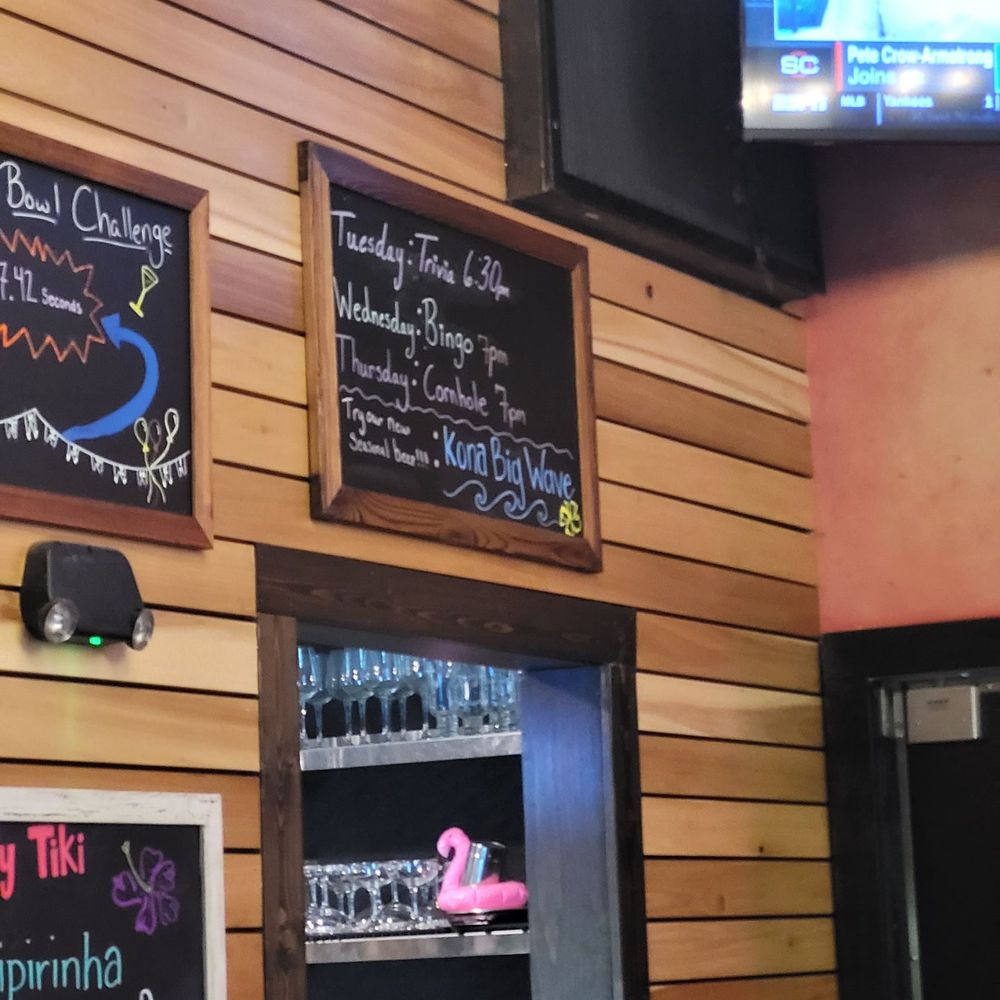 Bowl Challenge
7.42 Seconds
Tuesday: Trivia 6:30pm
Wednesday: Bingo 7pm
Thursday: Cornhole 7pm
Try our new
Seasonal beer!!! :
Kona Big Wave
SC
Pete Crow-Armstrong
Joins
ESPN
MLB
Yankees
y Tiki
ipirinha